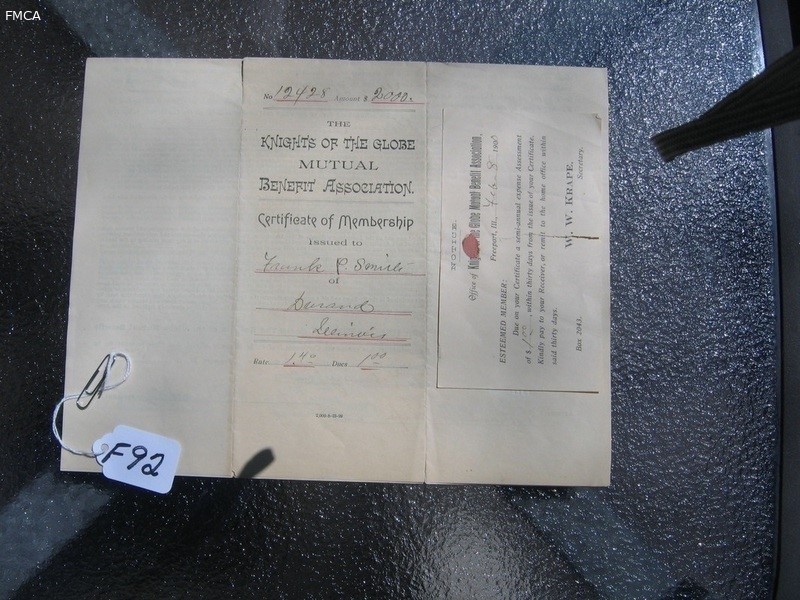 FMCA
No 12428 Amount $ 2000.
THE
KNIGHTS OF THE GLOBE
MUTUAL
BENEFIT ASSOCIATION.
Certificate of Membership
Issued to
Frank P Smith
of
Durand
Illinois
Rate 1.40 Dues 1.00
NOTICE.
Office of Knights of the Globe Mutual Benefit Association,
Freeport, Ill., Feb 8 190
ESTEEMED MEMBER:
Due on your Certificate a semi-annual expense Assessment
of $ 1.00, within thirty days from the issue of your Certificate.
Kindly pay to your Receiver, or remit to the home office within
said thirty days.
W. W. KRAPE,
Box 2043. Secretary.
F92